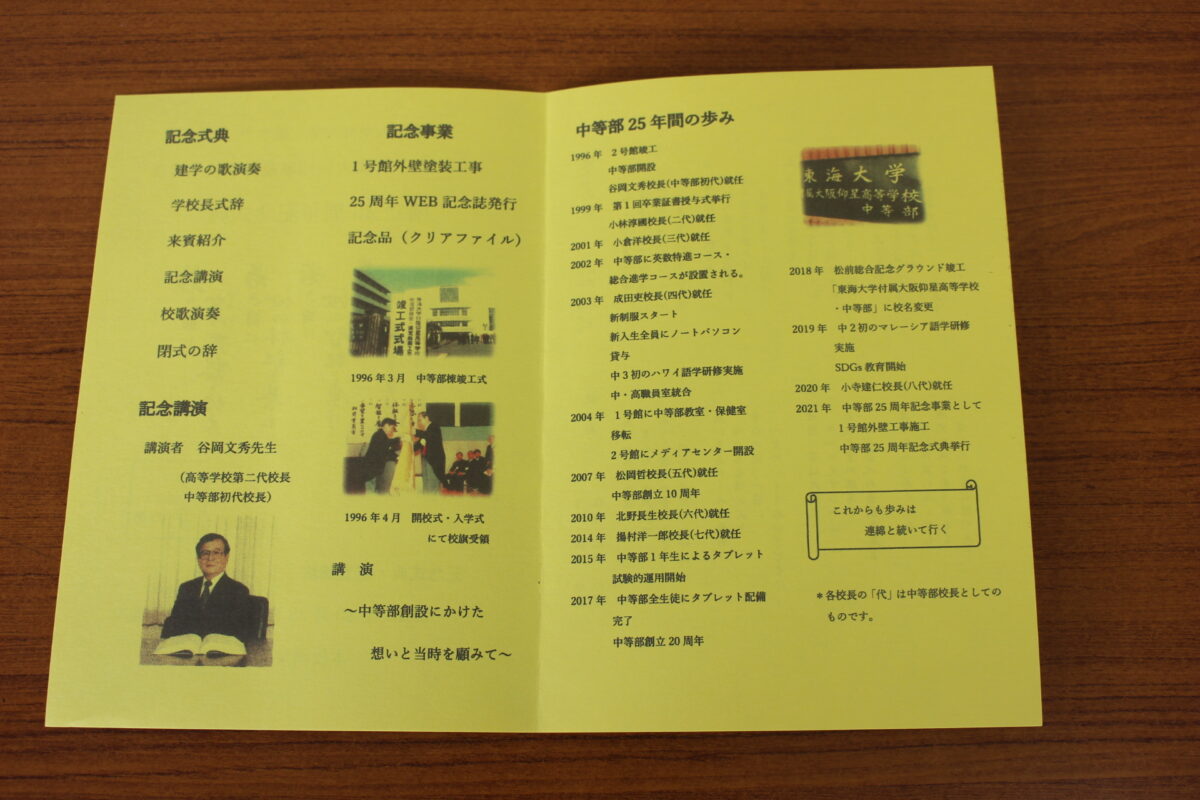 記念式典
建学の歌演奏
学校長式辞
来賓紹介
記念講演
校歌演奏
閉式の辞
記念講演
講演者　谷岡文秀先生
（高等学校第二代校長
中等部初代校長）
記念事業
１号館外壁塗装工事
25周年WEB記念誌発行
記念品（クリアファイル）
竣工式式場
1996年3月　中等部棟竣工式
1996年4月　開校式・入学式
にて校旗受領
講　演
～中等部創設にかけた
想いと当時を顧みて～
中等部25年間の歩み
1996年　2号館竣工
中等部開設
谷岡文秀校長(中等部初代)就任
1999年　第1回卒業証書授与式挙行
小林淳國校長(二代)就任
2001年　小倉洋校長(三代)就任
2002年　中等部に英数特進コース・
総合進学コースが設置される。
2003年　成田吏校長(四代)就任
新制服スタート
新入生全員にノートパソコン
貸与
中3初のハワイ語学研修実施
中・高職員室統合
2004年　1号館に中等部教室・保健室
移転
2号館にメディアセンター開設
2007年　松岡哲校長(五代)就任
中等部創立10周年
2010年　北野長生校長(六代)就任
2014年　揚村洋一郎校長(七代)就任
2015年　中等部1年生によるタブレット
試験的運用開始
2017年　中等部全生徒にタブレット配備
完了
中等部創立20周年
東海大学
属大阪仰星高等学校
中等部
2018年　松前総合記念グラウンド竣工
「東海大学付属大阪仰星高等学校
・中等部」に校名変更
2019年　中2初のマレーシア語学研修
実施
SDGs教育開始
2020年　小寺建仁校長(八代)就任
2021年　中等部25周年記念事業として
1号館外壁工事施工
中等部25周年記念式典挙行
これからも歩みは
連綿と続いて行く
＊各校長の「代」は中等部校長としての
ものです。